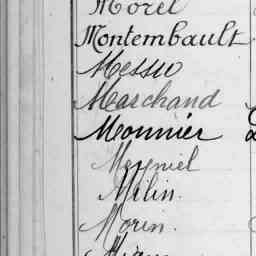 Morel
Montembault
Messu
Marchand
Monnier
Mesniel
Milin.
Morin.